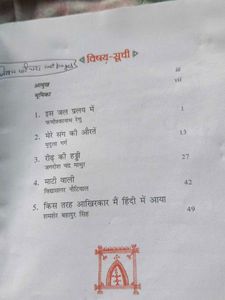 विषय-सूची
आमुख iii
भूमिका vii
1. इस जल प्रलय में 1
फणीश्वरनाथ रेणु
2. मेरे संग की औरतें 13
मृदुला गर्ग
3. रीढ़ की हड्डी 27
जगदीश चंद्र माथुर
4. माटी वाली 42
विद्यासागर नौटियाल
5. किस तरह आखिरकार मैं हिंदी में आया 49
शमशेर बहादुर सिंह